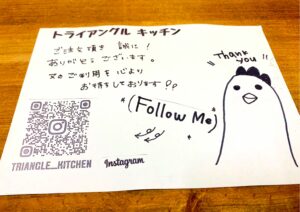 トライアングル キッチン
ご注文頂き 誠に!
ありがとうございます。
又のご利用を心より
お待ちしております??
Thank you!!
(Follow Me)
TRIANGLE_KITCHEN
Instagram